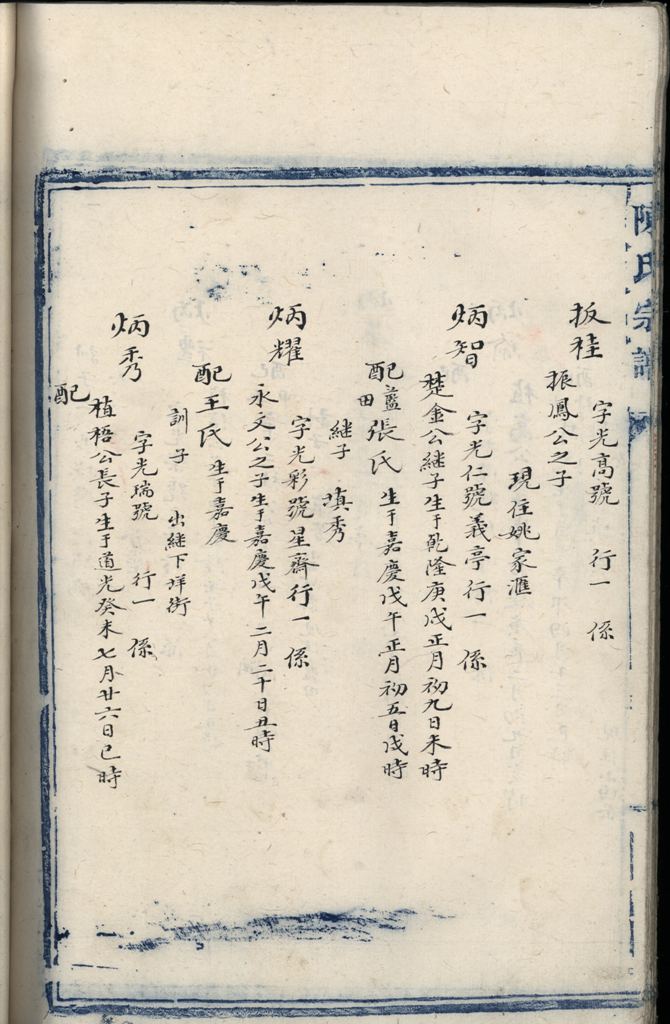 陳氏宗譜
振桂
字光高號 行一 係
振鳳公之子
現住姚家滙
炳智
字光仁號義亭行一 係
楚金公繼子生于乾隆庚戌正月初九日未時
配藍田張氏 生于嘉慶戊午正月初五日戌時
繼子 填秀
炳耀
字光彩號星齋行一 係
永文公之子生于嘉慶戊午二月二十日丑時
配王氏 生于嘉慶
訓子 出繼下垟街
炳秀
字光瑞號 行一 係
植梧公長子生于道光癸未七月廿六日巳時
配